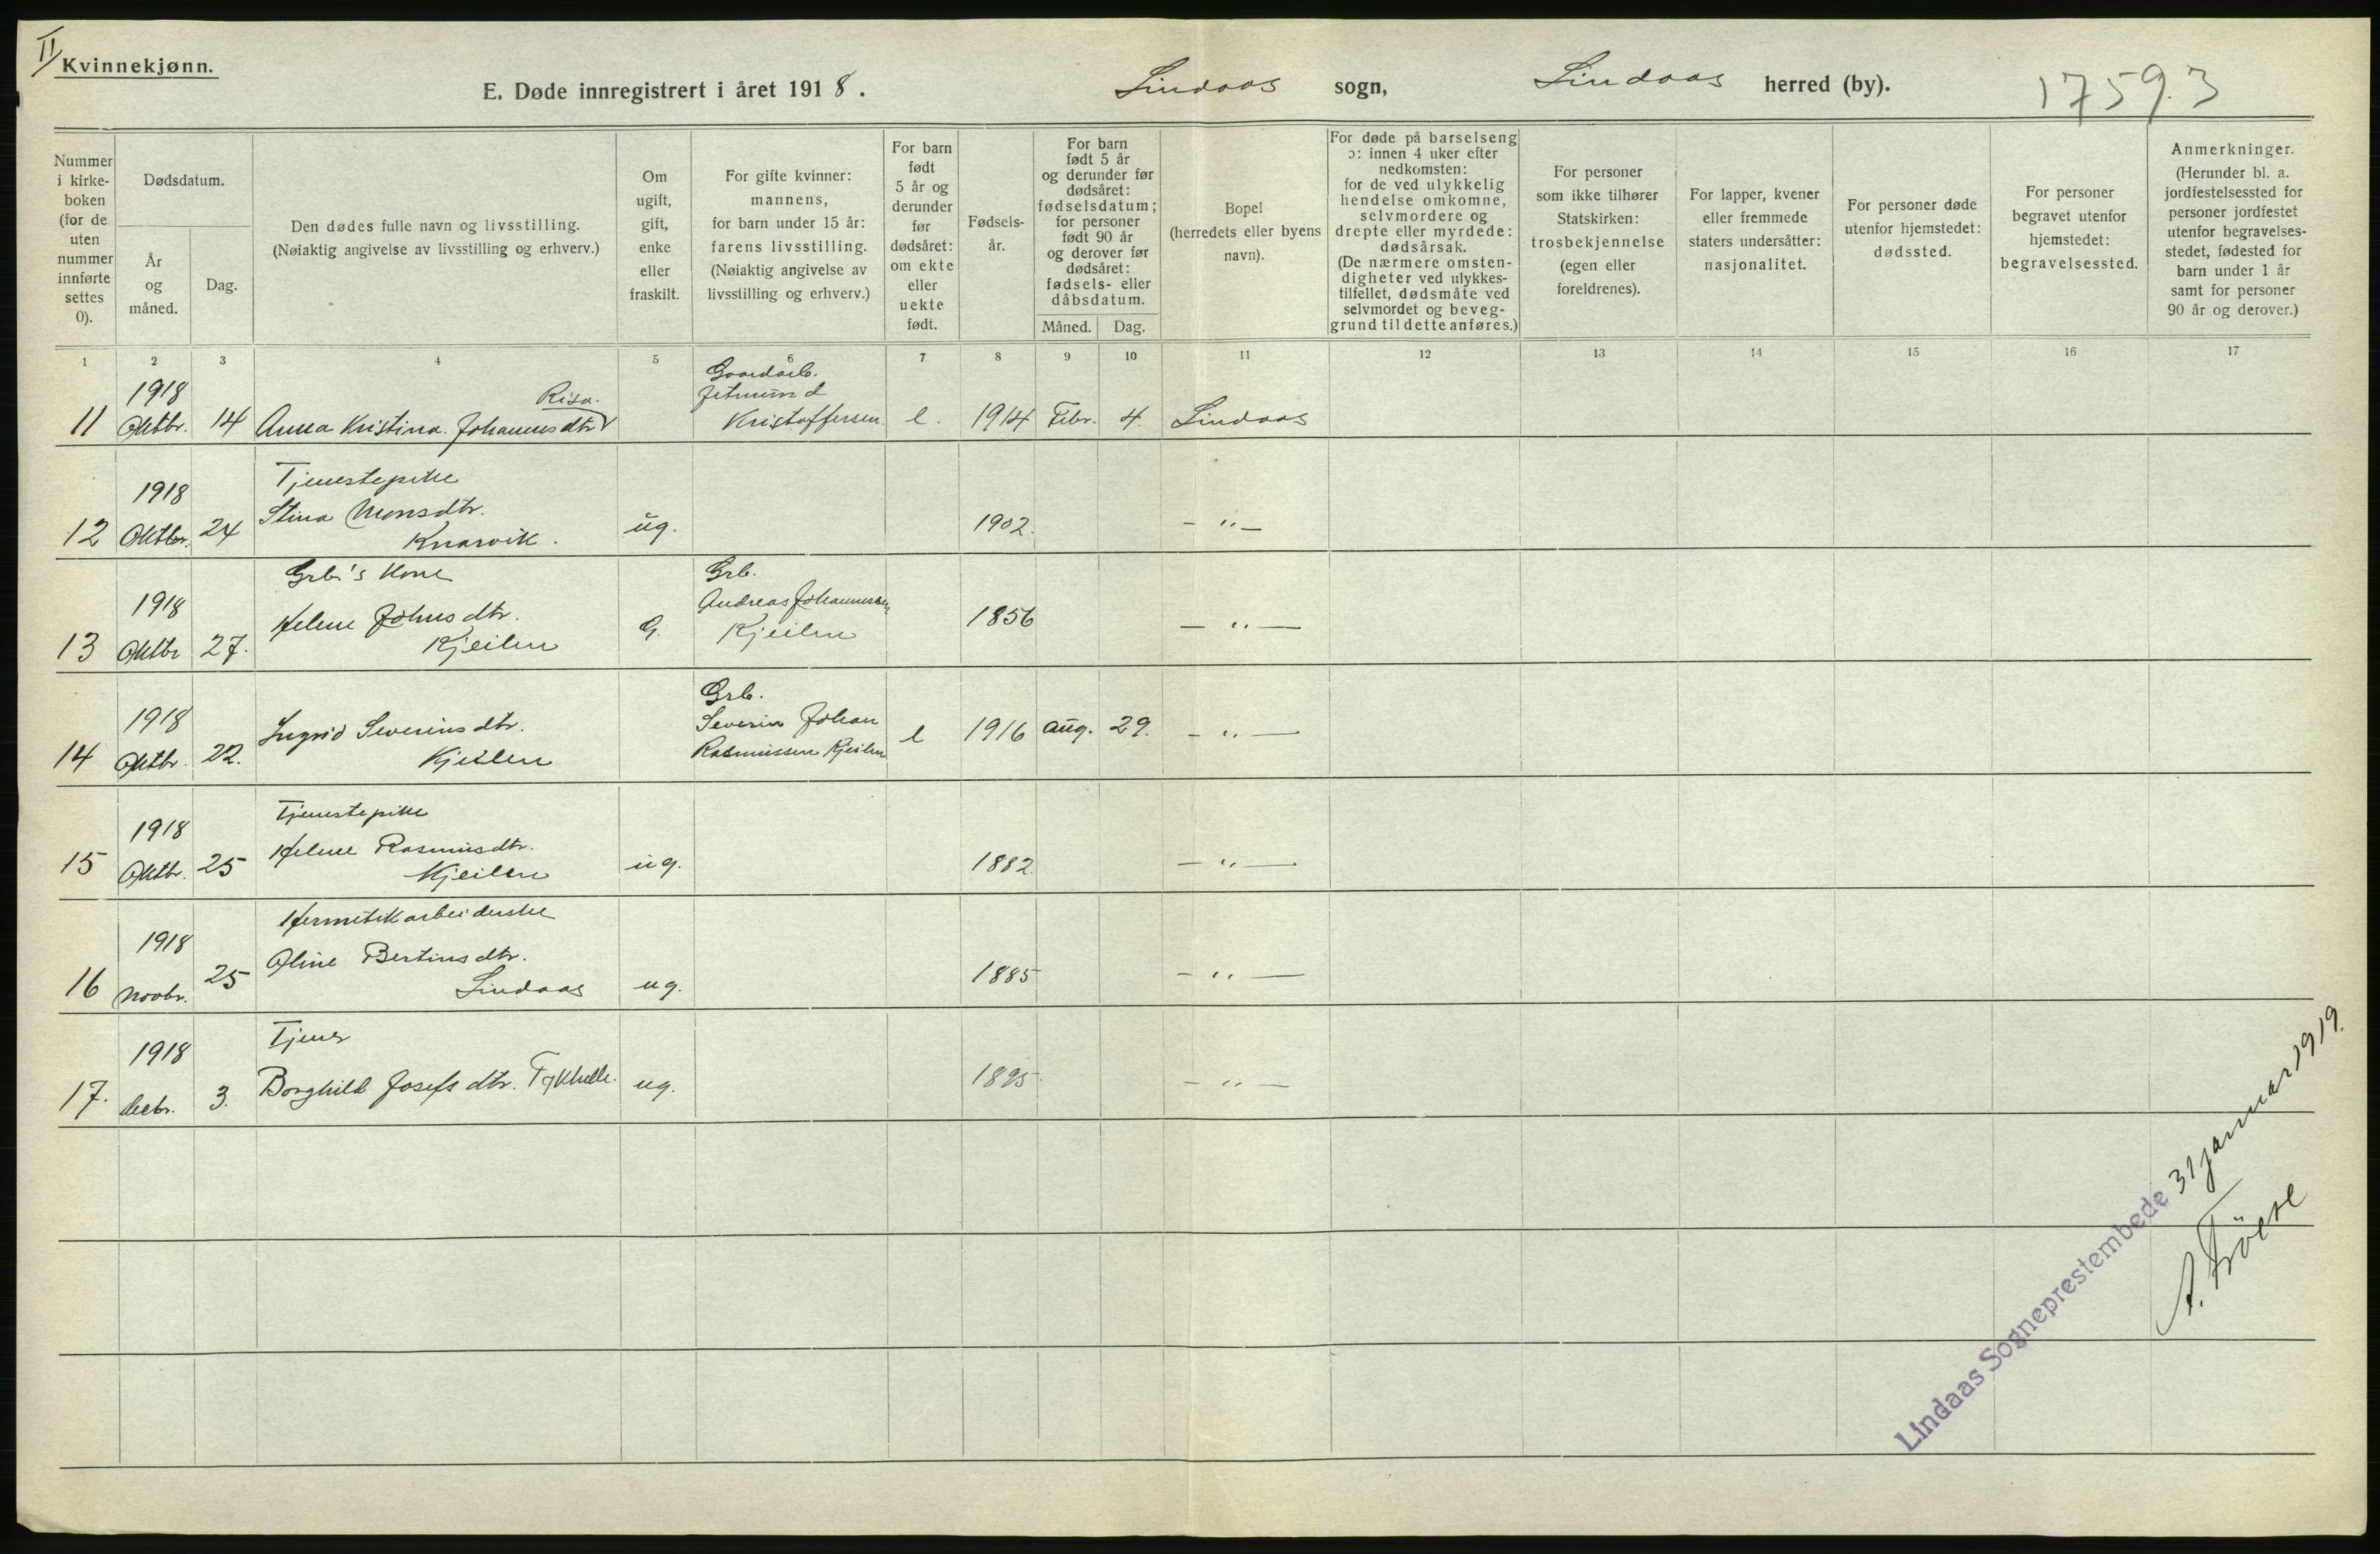 II
Kvinnekjønn.
E. Døde innregistrert i året 1918.
Lindaas sogn,
Lindaas herred (by).
17593
Nummer
i kirke-
boken
(for de
uten
nummer
innførte
settes
0).
Dødsdatum.
År
og
måned.
Dag.
Den dødes fulle navn og livsstilling.
(Nøiaktig angivelse av livsstilling og erhverv.)
Om
ugift,
gift,
enke
eller
fraskilt.
For gifte kvinner:
mannens,
for barn under 15 år:
farens livsstilling.
(Nøiaktig angivelse av
livsstilling og erhverv.)
For barn
født
5 år og
derunder
før
dødsåret:
om ekte
eller
uekte
født.
Fødsels-
år.
For barn
født 5 år
og derunder før
dødsåret:
fødselsdatum;
for personer
født 90 år
og derover før
dødsåret:
fødsels- eller
dåbsdatum.
Måned.
Dag.
Bopel
(herredets eller byens
navn).
For døde på barselseng
ɔ: innen 4 uker efter
nedkomsten:
for de ved ulykkelig
hendelse omkomne,
selvmordere og
drepte eller myrdede:
dødsårsak.
(De nærmere omsten-
digheter ved ulykkes-
tilfellet, dødsmåte ved
selvmordet og beveg-
grund til dette anføres.)
For personer
som ikke tilhører
Statskirken:
trosbekjennelse
(egen eller
foreldrenes).
For lapper, kvener
eller fremmede
staters undersåtter:
nasjonalitet.
For personer døde
utenfor hjemstedet:
dødssted.
For personer
begravet utenfor
hjemstedet:
begravelsessted.
Anmerkninger.
(Herunder bl. a.
jordfestelsessted for
personer jordfestet
utenfor begravelses-
stedet, fødested for
barn under 1 år
samt for personer
90 år og derover.)
1 2 3 4 5 6 7 8 9 10 11 12 13 14 15 16 17
11
1918
Oktbr. 14
Risa.
Anna Kristina Johannesdtr
Gaardarb.
Kristoffersen
e.
1914 Febr. 4.
Lindaas
12
1918
Oktbr. 24
Tjenestepike
Stina Monsdtr.
Knarvik.
ug.
1902.
- " -
13
1918
Oktbr 27.
Grb.'s Kone
Helene Johnsdtr.
Kjeilen
G.
Grb.
Andreas Johannessen
Kjeilen
1856
- " -
14
1918
Oktbr. 22.
Ingrid Severinsdtr.
Kjeilen
Grb.
Severin Johan
Rasmussen Kjeilen
e
1916 Aug. 29.
- " -
15
1918
Oktbr. 25
Tjenestepike
Helene Rasmusdtr.
Kjeilen
ug.
1882.
- " -
16
1918
Novbr. 25
Hermetikarbeiderske
Oline Bertinsdtr.
Lindaas
ug.
1885
- " -
17.
1918
Decbr. 3.
Tjener
Borghild Josefsdtr.
ug.
1895.
- " -
Lindaas Sogneprestembede 31 januar 1919.